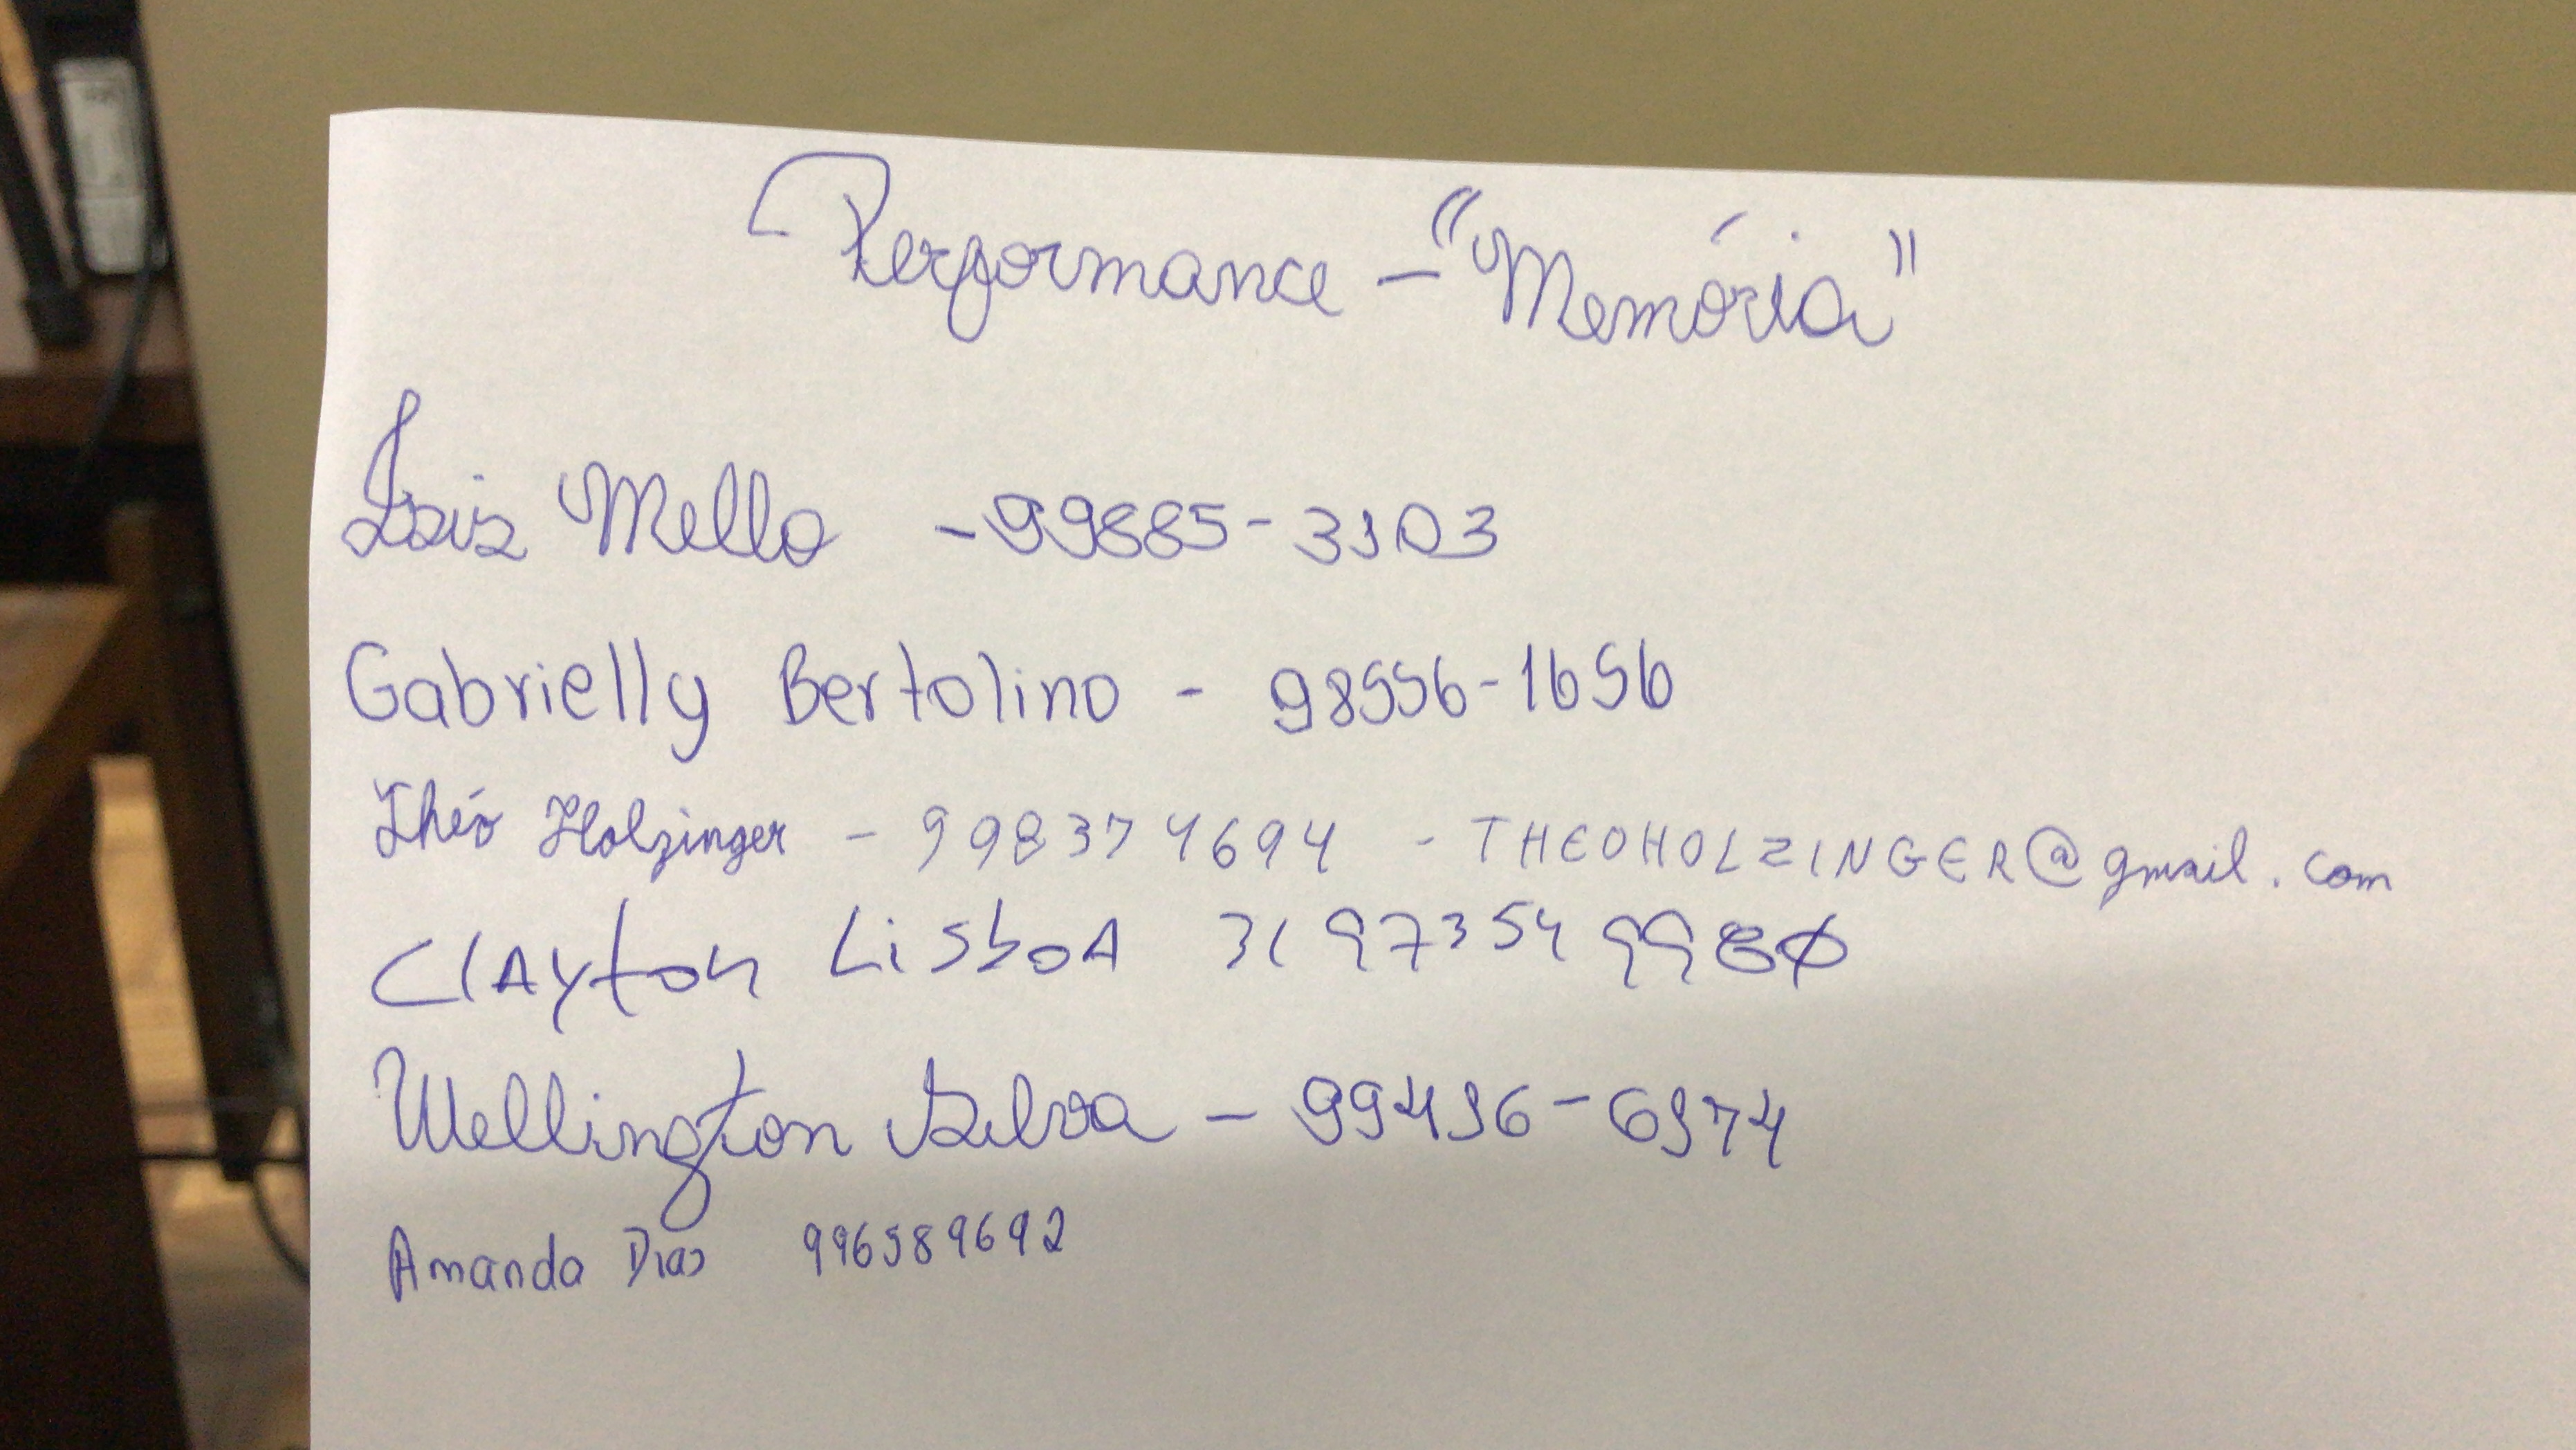 Performance - "Memória"
Luiz Mello - 99885-3103
Gabrielly Bertolino - 98556-1656
Théo Holzinger - 998374694 - THEOHOLZINGER@gmail.com
Clayton Lisboa 31 97354 9980
Wellington Silva - 99436-6974
Amanda Dias 996589692